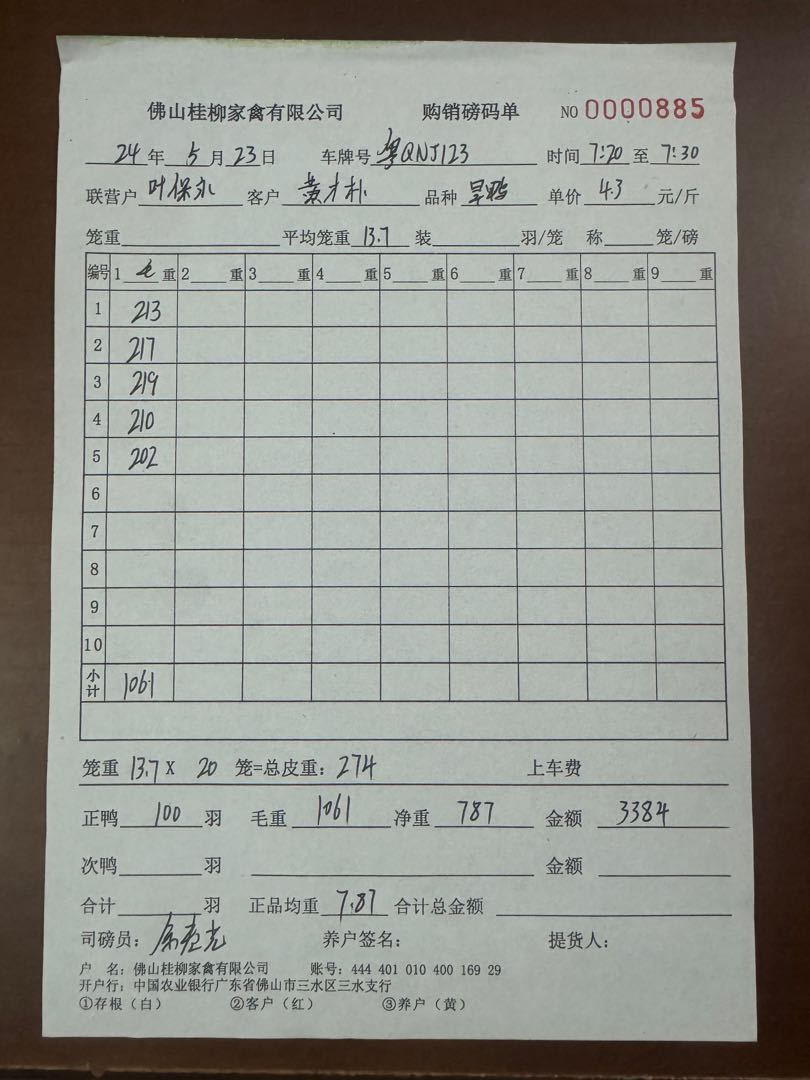 佛山桂柳家禽有限公司 购销磅码单 NO 0000885
24年 5月23日 车牌号 粤QNJ123 时间 7:20 至 7:30
联营户 叶保永 客户 黄才朴 品种 旱鸭 单价 4.3 元/斤
笼重 平均笼重 13.7 装 羽/笼 称 笼/磅
编号 1 毛 重 2 重 3 重 4 重 5 重 6 重 7 重 8 重 9 重
1 213
2 217
3 219
4 210
5 202
6
7
8
9
10
小计 1061
笼重 13.7 X 20 笼=总皮重: 274 上车费
正鸭 100 羽 毛重 1061 净重 787 金额 3384
次鸭 羽 金额
合计 羽 正品均重 7.87 合计总金额
司磅员: 养户签名: 提货人:
户 名: 佛山桂柳家禽有限公司 账号: 444 401 010 400 169 29
开户行: 中国农业银行广东省佛山市三水区三水支行
①存根(白) ②客户(红) ③养户(黄)